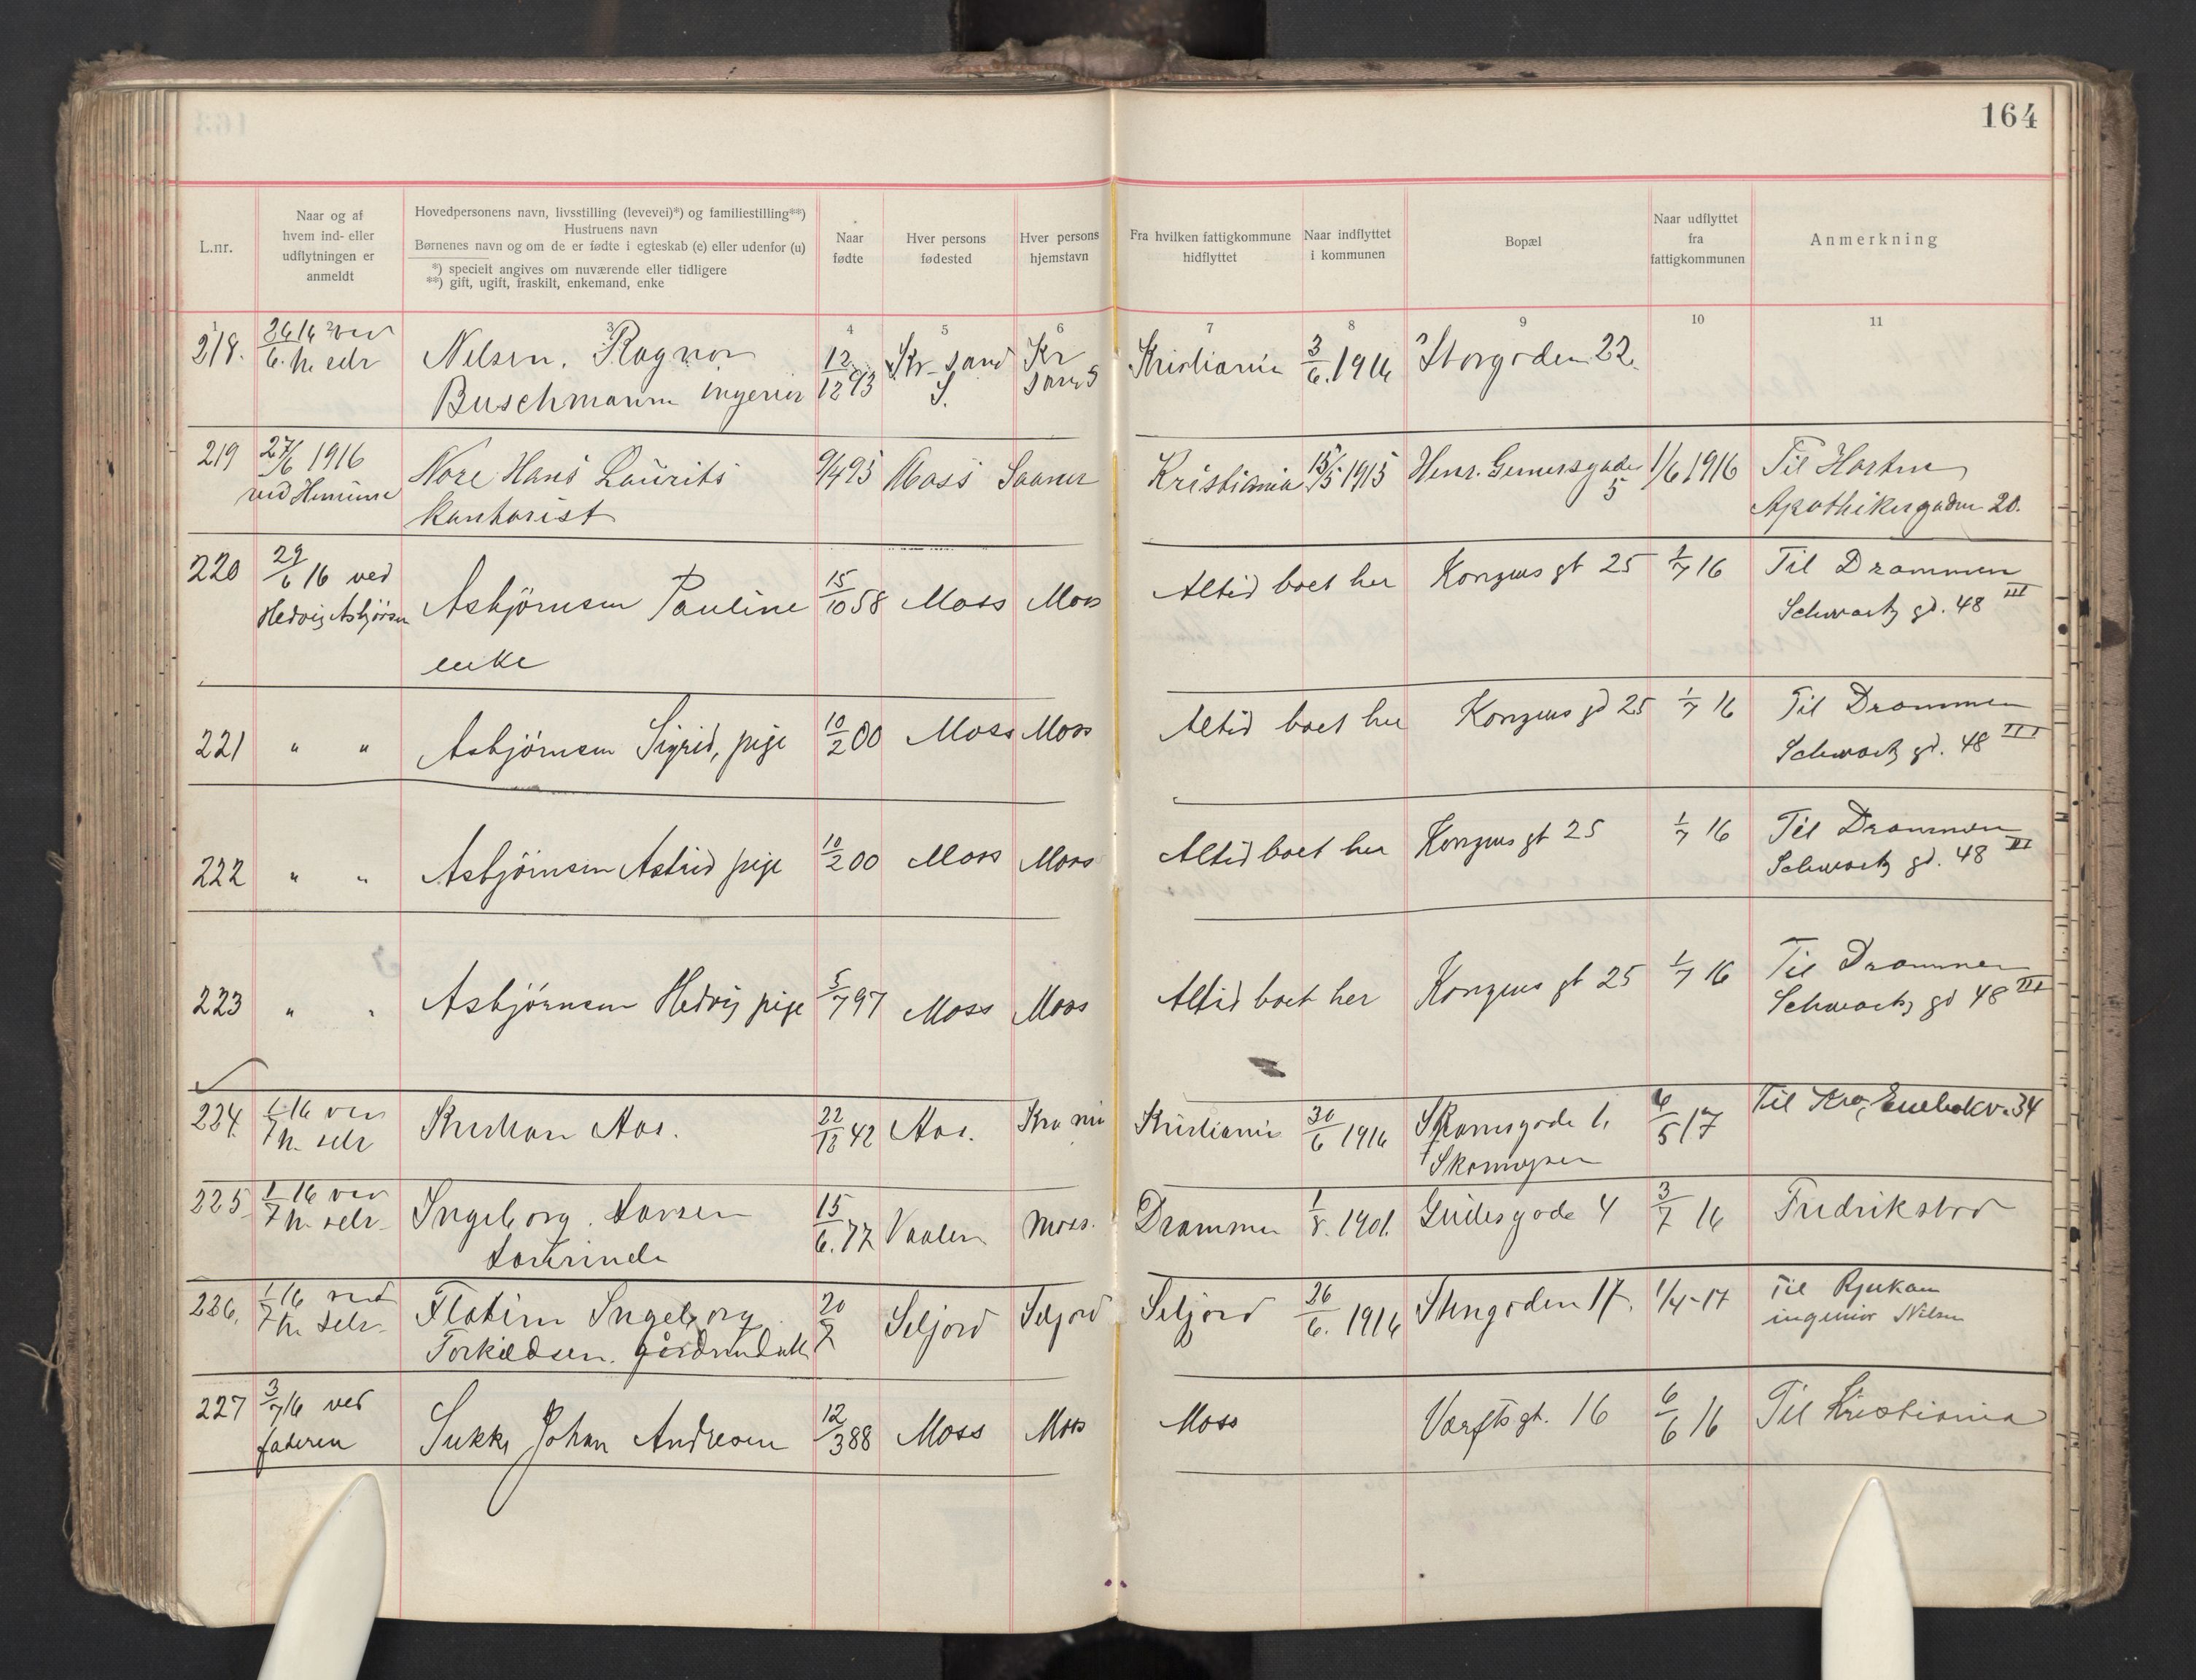 164
L.nr.
Naar og af
hvem ind- eller
udflytningen er
anmeldt
Hovedpersonens navn, livsstilling (levevei)*) og familiestilling**)
Hustruens navn
Børnenes navn og om de er fødte i egteskab (e) eller udenfor (u)
*) specielt angives om nuværende eller tidligere
**) gift, ugift, fraskilt, enkemand, enke
Naar
fødte
Hver persons
fødested
Hver persons
hjemstavn
Fra hvilken fattigkommune
hidflyttet
Naar indflyttet
i kommunen
Bopæl
Naar udflyttet
fra
fattigkommunen
Anmerkning
1 2 3 4 5 6 7 8 9 10 11
218. 26/6 16 ved h. selv Nilsen, Ragnar 12/12 93 Kr-sand S. Kr sand S Kristiania 3/6. 1916 Storgaden 22.
Buschmann ingeniør
219 27/6 1916 Nore Hans Laurits 9/4 95 Moss Saaner Kristiania 15/5 1915 Henr. Gernersgade 5 1/6 1916 Til Horten
kontorist Apothikergaden 20.
220 29/6 16 ved Asbjørnsen Pauline 15/10 58 Moss Moss Altid boet her Kongens gt 25 1/7 16 Til Drammen
Hedvig Asbjørnsen enke Schwartz gd. 48 III
221 " " Asbjørnsen Sigrid, pige 10/2 00 Moss Moss Altid boet her Kongens gd 25 1/7 16 Til Drammen
Schwartz gd. 48 III
222 " " Asbjørnsen Astrid pige 10/2 00 Moss Moss Altid boet her Kongens gt 25 1/7 16 Til Drammen
Schwartz gd. 48 III
223 " " Asbjørnsen Hedvig pige 5/7 97 Moss Moss Altid boet her Kongens gt 25 1/7 16 Til Drammen
Schwartz gd 48 III
224. 1/7 16 ved h. selv Kristian Aas. 22/12 42 Aas. Kra nia Kristiania 30/6 1916 1. 6/5 17 Til Kra, Enebakv. 34
225 1/7 16 ved h. selv Ingeborg Larsen 15/6. 77 Vaaler Moss. Drammen 1/8. 1901. Gudesgade 4 3/7 16 Fredrikstad
Lærerinde
226. 1/7 16 ved h. selv Flatin Ingeborg 20/7 Seljord Seljord Seljord 26/6. 1916 Stengaden 17. 1/4-17 Til Rjukan
Torkildsen. ingeniør Nilsen
227 3/7 16 ved faderen Sukke Johan Andresen 12/3 88 Moss Moss Moss Værftsgt. 16 6/6 16 Til Kristiania